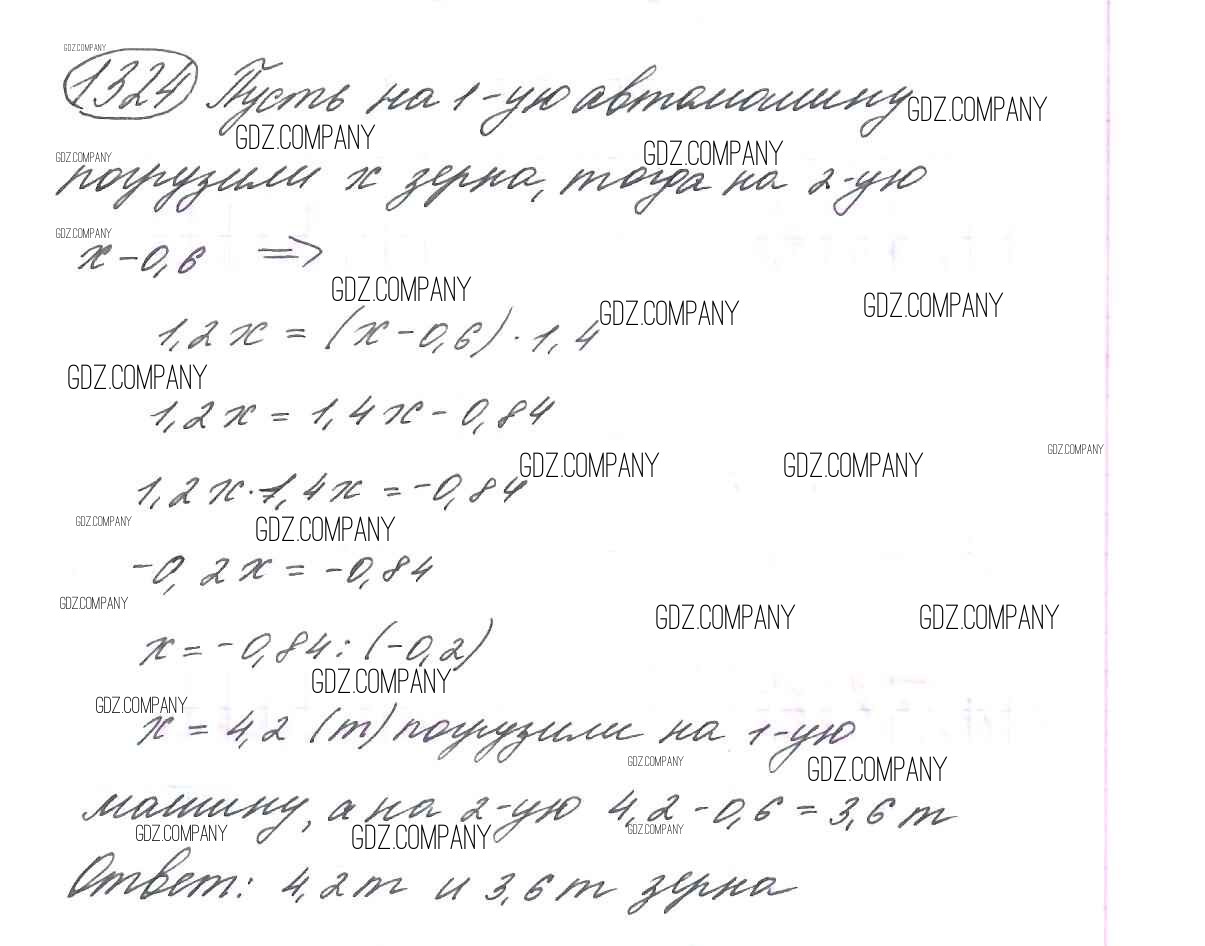 GDZ.COMPANY
1324 Пусть на 1-ую автомашину
GDZ.COMPANY
GDZ.COMPANY
GDZ.COMPANY
GDZ.COMPANY
погрузили x зерна, тогда на 2-ую
GDZ.COMPANY
x-0,6 =>
GDZ.COMPANY
GDZ.COMPANY
GDZ.COMPANY
1,2x = (x-0,6)·1,4
GDZ.COMPANY
1,2x = 1,4x - 0,84
GDZ.COMPANY
GDZ.COMPANY
GDZ.COMPANY
1,2x-1,4x = -0,84
GDZ.COMPANY
GDZ.COMPANY
-0,2x = -0,84
GDZ.COMPANY
GDZ.COMPANY
GDZ.COMPANY
x = -0,84 : (-0,2)
GDZ.COMPANY
GDZ.COMPANY
x = 4,2 (т) погрузили на 1-ую
GDZ.COMPANY
GDZ.COMPANY
машину, а на 2-ую 4,2-0,6 = 3,6 т
GDZ.COMPANY
GDZ.COMPANY
GDZ.COMPANY
Ответ: 4,2 т и 3,6 т зерна